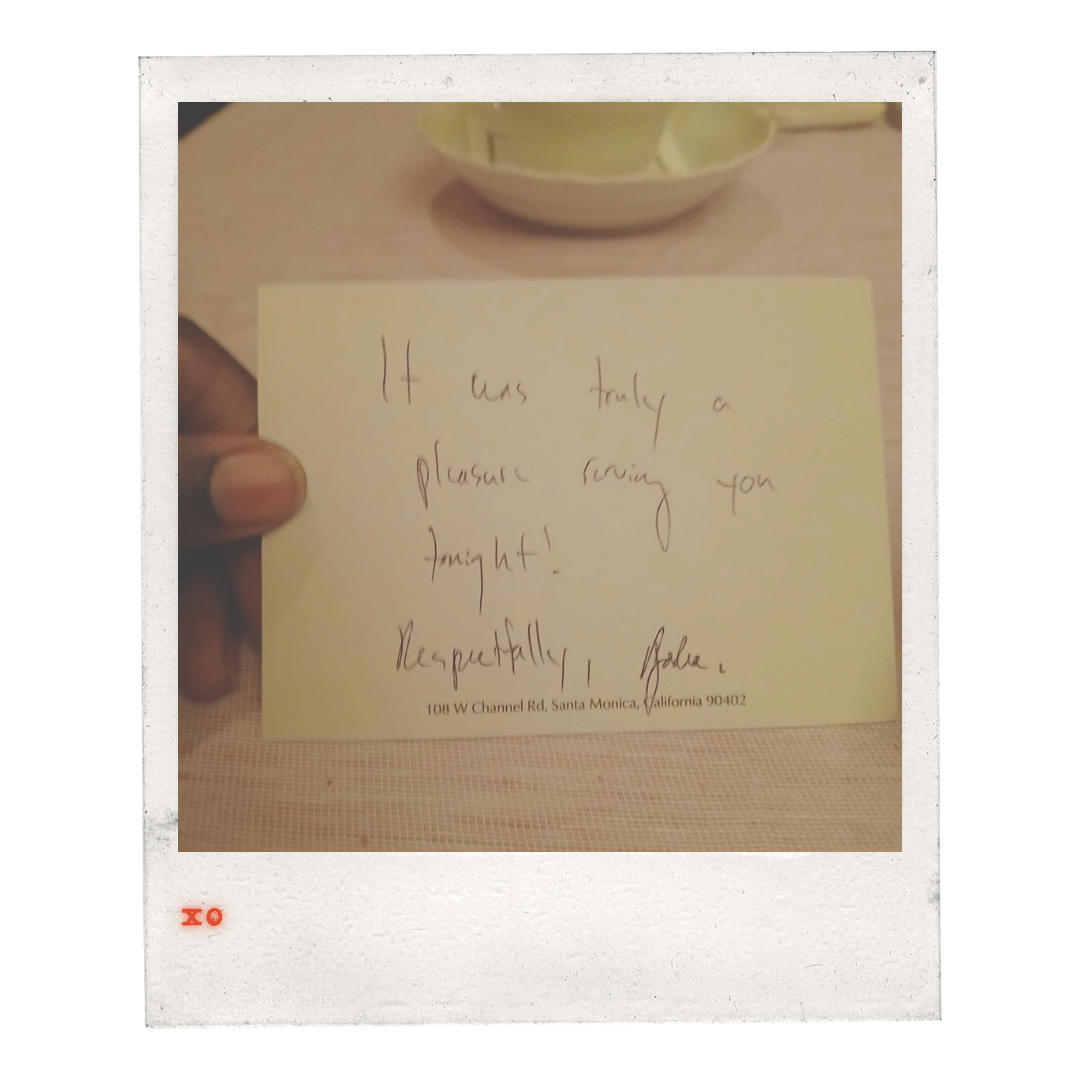 It was truly a
pleasure serving you
tonight!
Respectfully,
108 W Channel Rd, Santa Monica, California 90402
XO